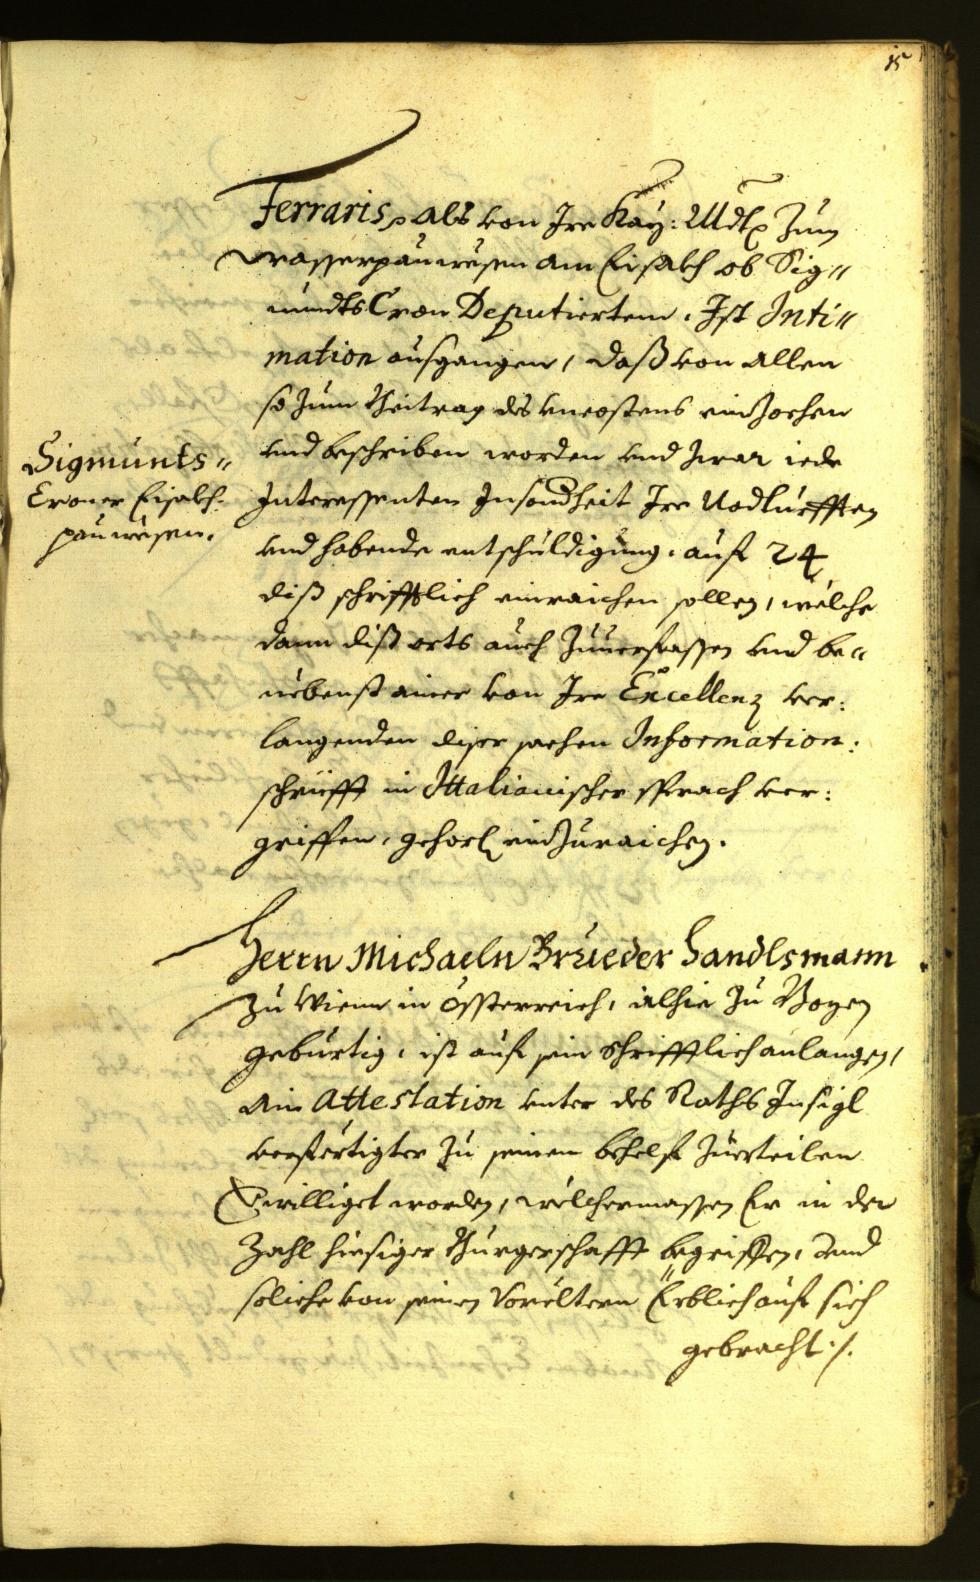 15
Ferraris, als von Irer Kay: Mdt. Zum
wasserpauwesen am Eisakh ob Sig"
mundtsCron Deputiertem. Ist Inti"
mation ausgangen, daß von allen
so zum Beitrag des uncostens einzochen
und beschriben worden und zwar iede
Sigmunts"
Croner Eisakh
pauwesen.
Interessenten Insonndheit Ire Nodturfften
und habende entschuldigung, auf 24
diß schrifftlich einraichen sollen, welche
dann diß orts auch zuuerfassen und be"
nebenst ainer von Irer Excellenz ver:
langenden diser sachen Information:
schrüfft in Ittalianischer sprach ver:
griffen, gehors. einzuraichen.
Herrn Michaeln Brüeder Handlsmann
zu Wienn in Össterreich, alhie zu Bozen
gebürtig, ist auf sein schrifftlich anlangen,
ain Attestation unter des Raths Insigl
verfertigter zu seinem behelf zuerteilen
bewilliget worden, welchermassen Er in der
Zahl hiesiger Burgerschafft begriffen, und
soliche von seinen Voreltern Erblich auf sich
gebracht ./.